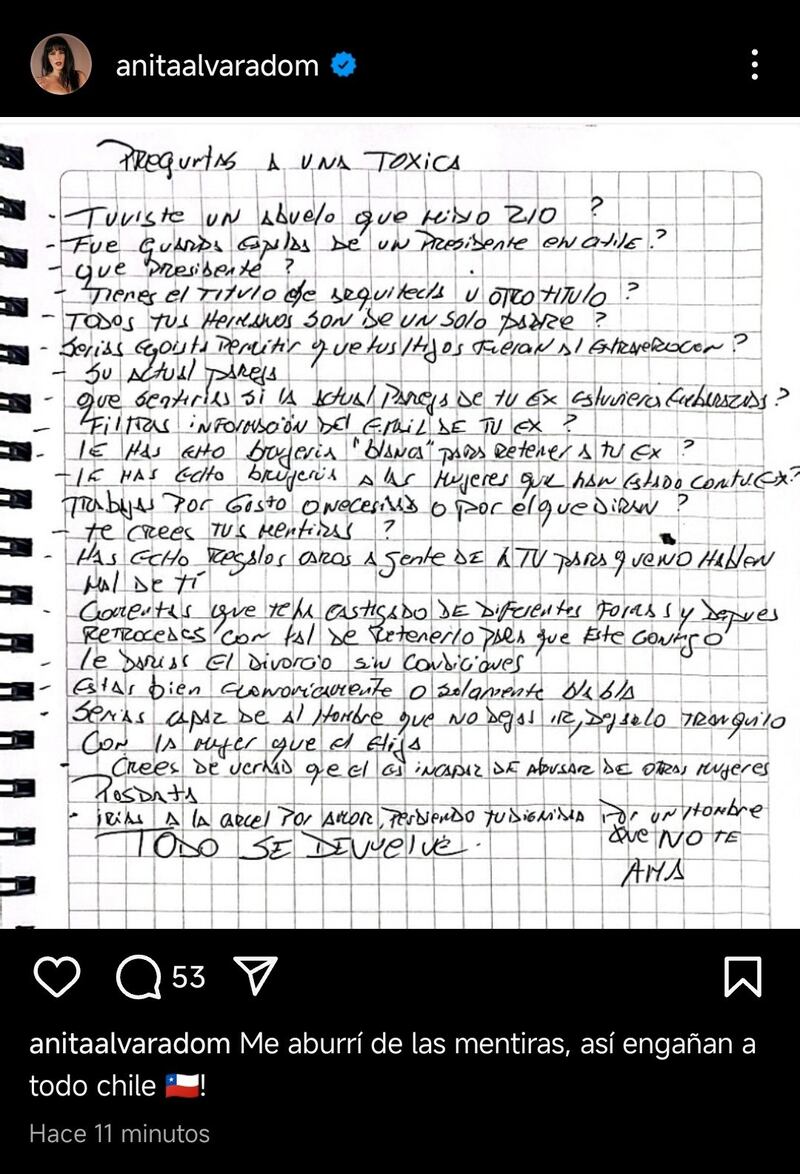 anitaalvaradom
Preguntas A UNA TOXICA
- TUVISTE UN Abuelo que HIZO 210 ?
- Fue GUARDA Espaldas DE UN Presidente EN CHILE ?
- que Presidente ?
- Tienes el TITULO de arquitecta U OTRO TITULO ?
- TODOS TUS HERMANOS SON DE UN SOLO PADRE ?
- Serias Egoista Permitir que tus Hijos fueran Al con ?
- Su Actual Pareja
- que sentirias si la Actual Pareja de tu EX estuviera Embarazada ?
- Filtras INFORMACIÓN DEL EMAIL DE TU EX ?
- LE HAS EHO brujeria "blanca" para Retener A tu EX ?
- LE HAS ECHO brujeria A las Mujeres que han Estado CON TU EX?
Trabajas Por Gusto O necesidad O por el que DIRAN ?
- te CREES TUS MENTIRAS ?
- HAS ECHO Regalos CAROS A gente DE LA TV para que NO HABLEN
MAL DE TÍ
- Comentas que te ha CASTIGADO DE Diferentes Formas y Depues
RETROCEDES CON tal de Retenerlo para que Este Contigo
- le DARIAS El DIVORCIO SIN CONDICIONES
- Estas bien o Solamente bla bla
- SERIAS CAPAZ DE Al Hombre que NO DEJAS IR, Dejarlo TRANQUILO
CON la Mujer que el Elija
- CREES DE VERDAD qe el es INCAPAZ DE ABUSAR DE OTRAS Mujeres
Posdata
- IRIAS A LA CARCEL POR AMOR, PERDIENDO TU DIGNIDAD Por UN HOMBRE
QUE NO TE
AMA
TODO SE DEVUELVE.
53
anitaalvaradom Me aburrí de las mentiras, así engañan a
todo chile 🇨🇱!
Hace 11 minutos